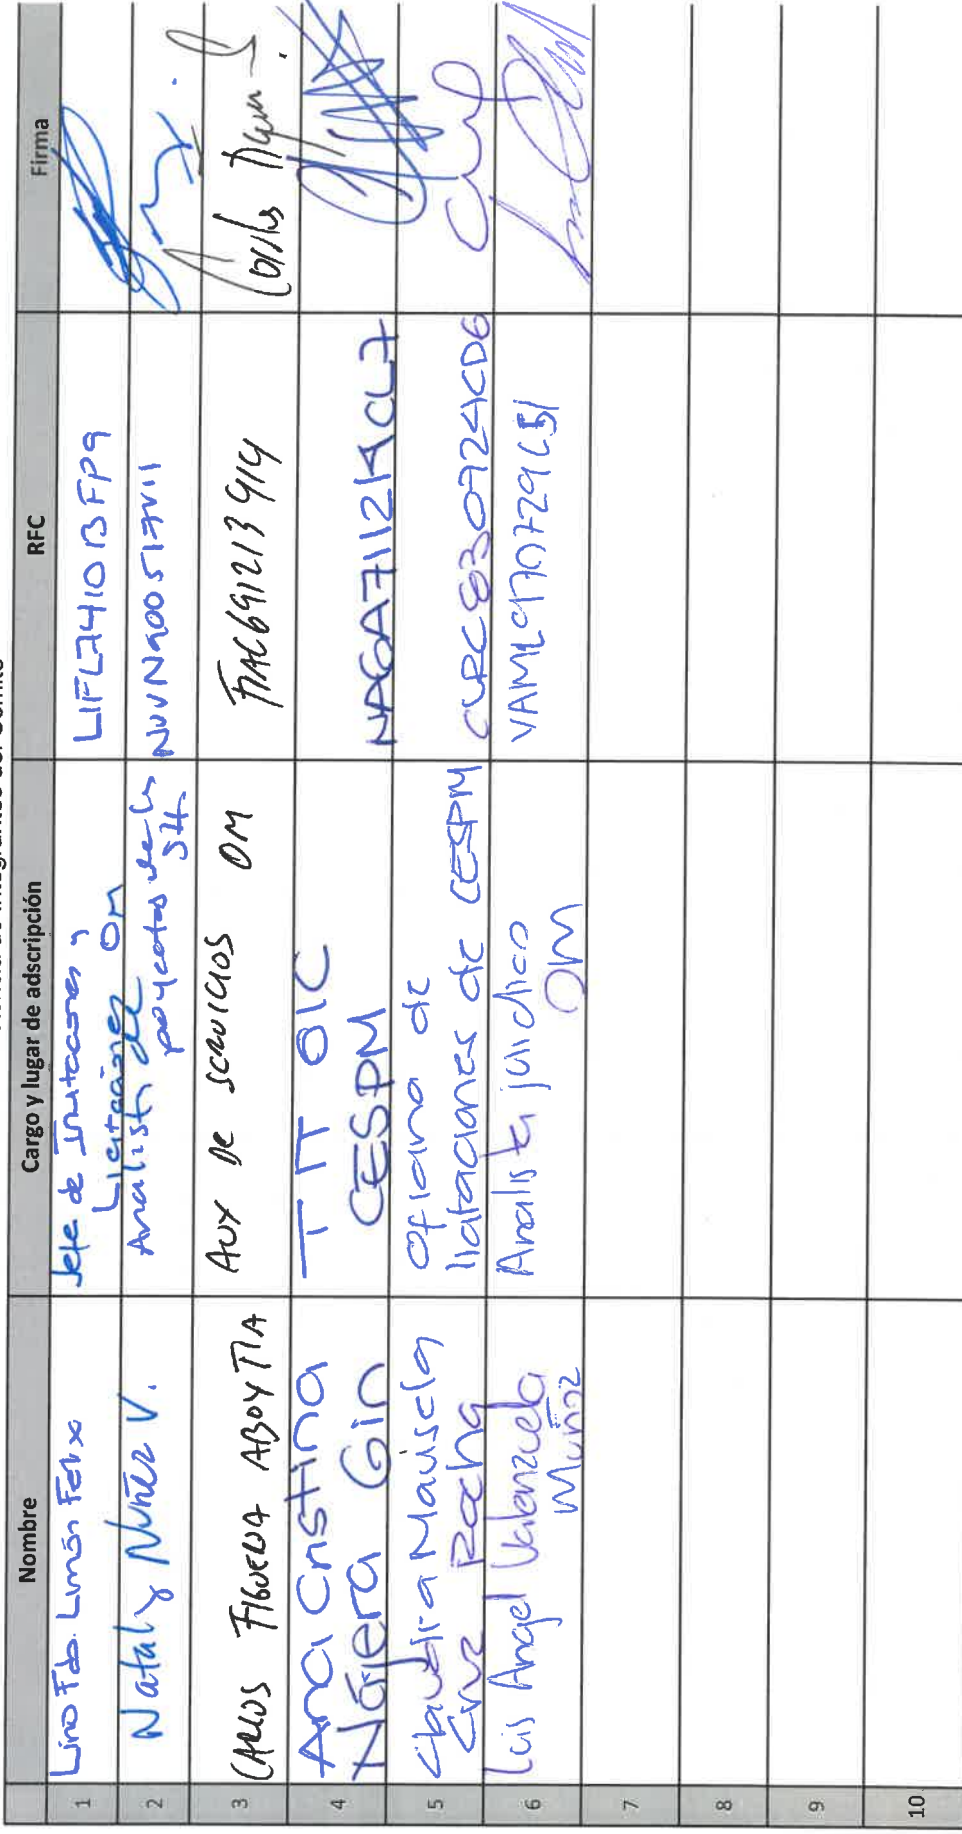 Nombre
Cargo y lugar de adscripción
RFC
Firma
1
Lino Fdo. Limón Felix
Jefe de Invitaciones y
Licitaciones OM
LIFL741013FP9
2
Nataly Nuñez V.
Analista de
proyectos de la
SH.
NUVN900517V11
3
CARLOS FIGUEROA ABOYTIA
AUX DE SERVICIOS OM
FIAC691213914
Carlos
4
Ana Cristina
Nájera Gin
TIT OIC
CESPM
NAGA711211CL7
5
Claudia Mariscla
Cruz Rocha
Oficina de
licitaciones de CESPM
CURC830724CD6
6
Luis Angel Valenzuela
Muñoz
Analista juridico
OM
VAML9170729C51
7
8
9
10